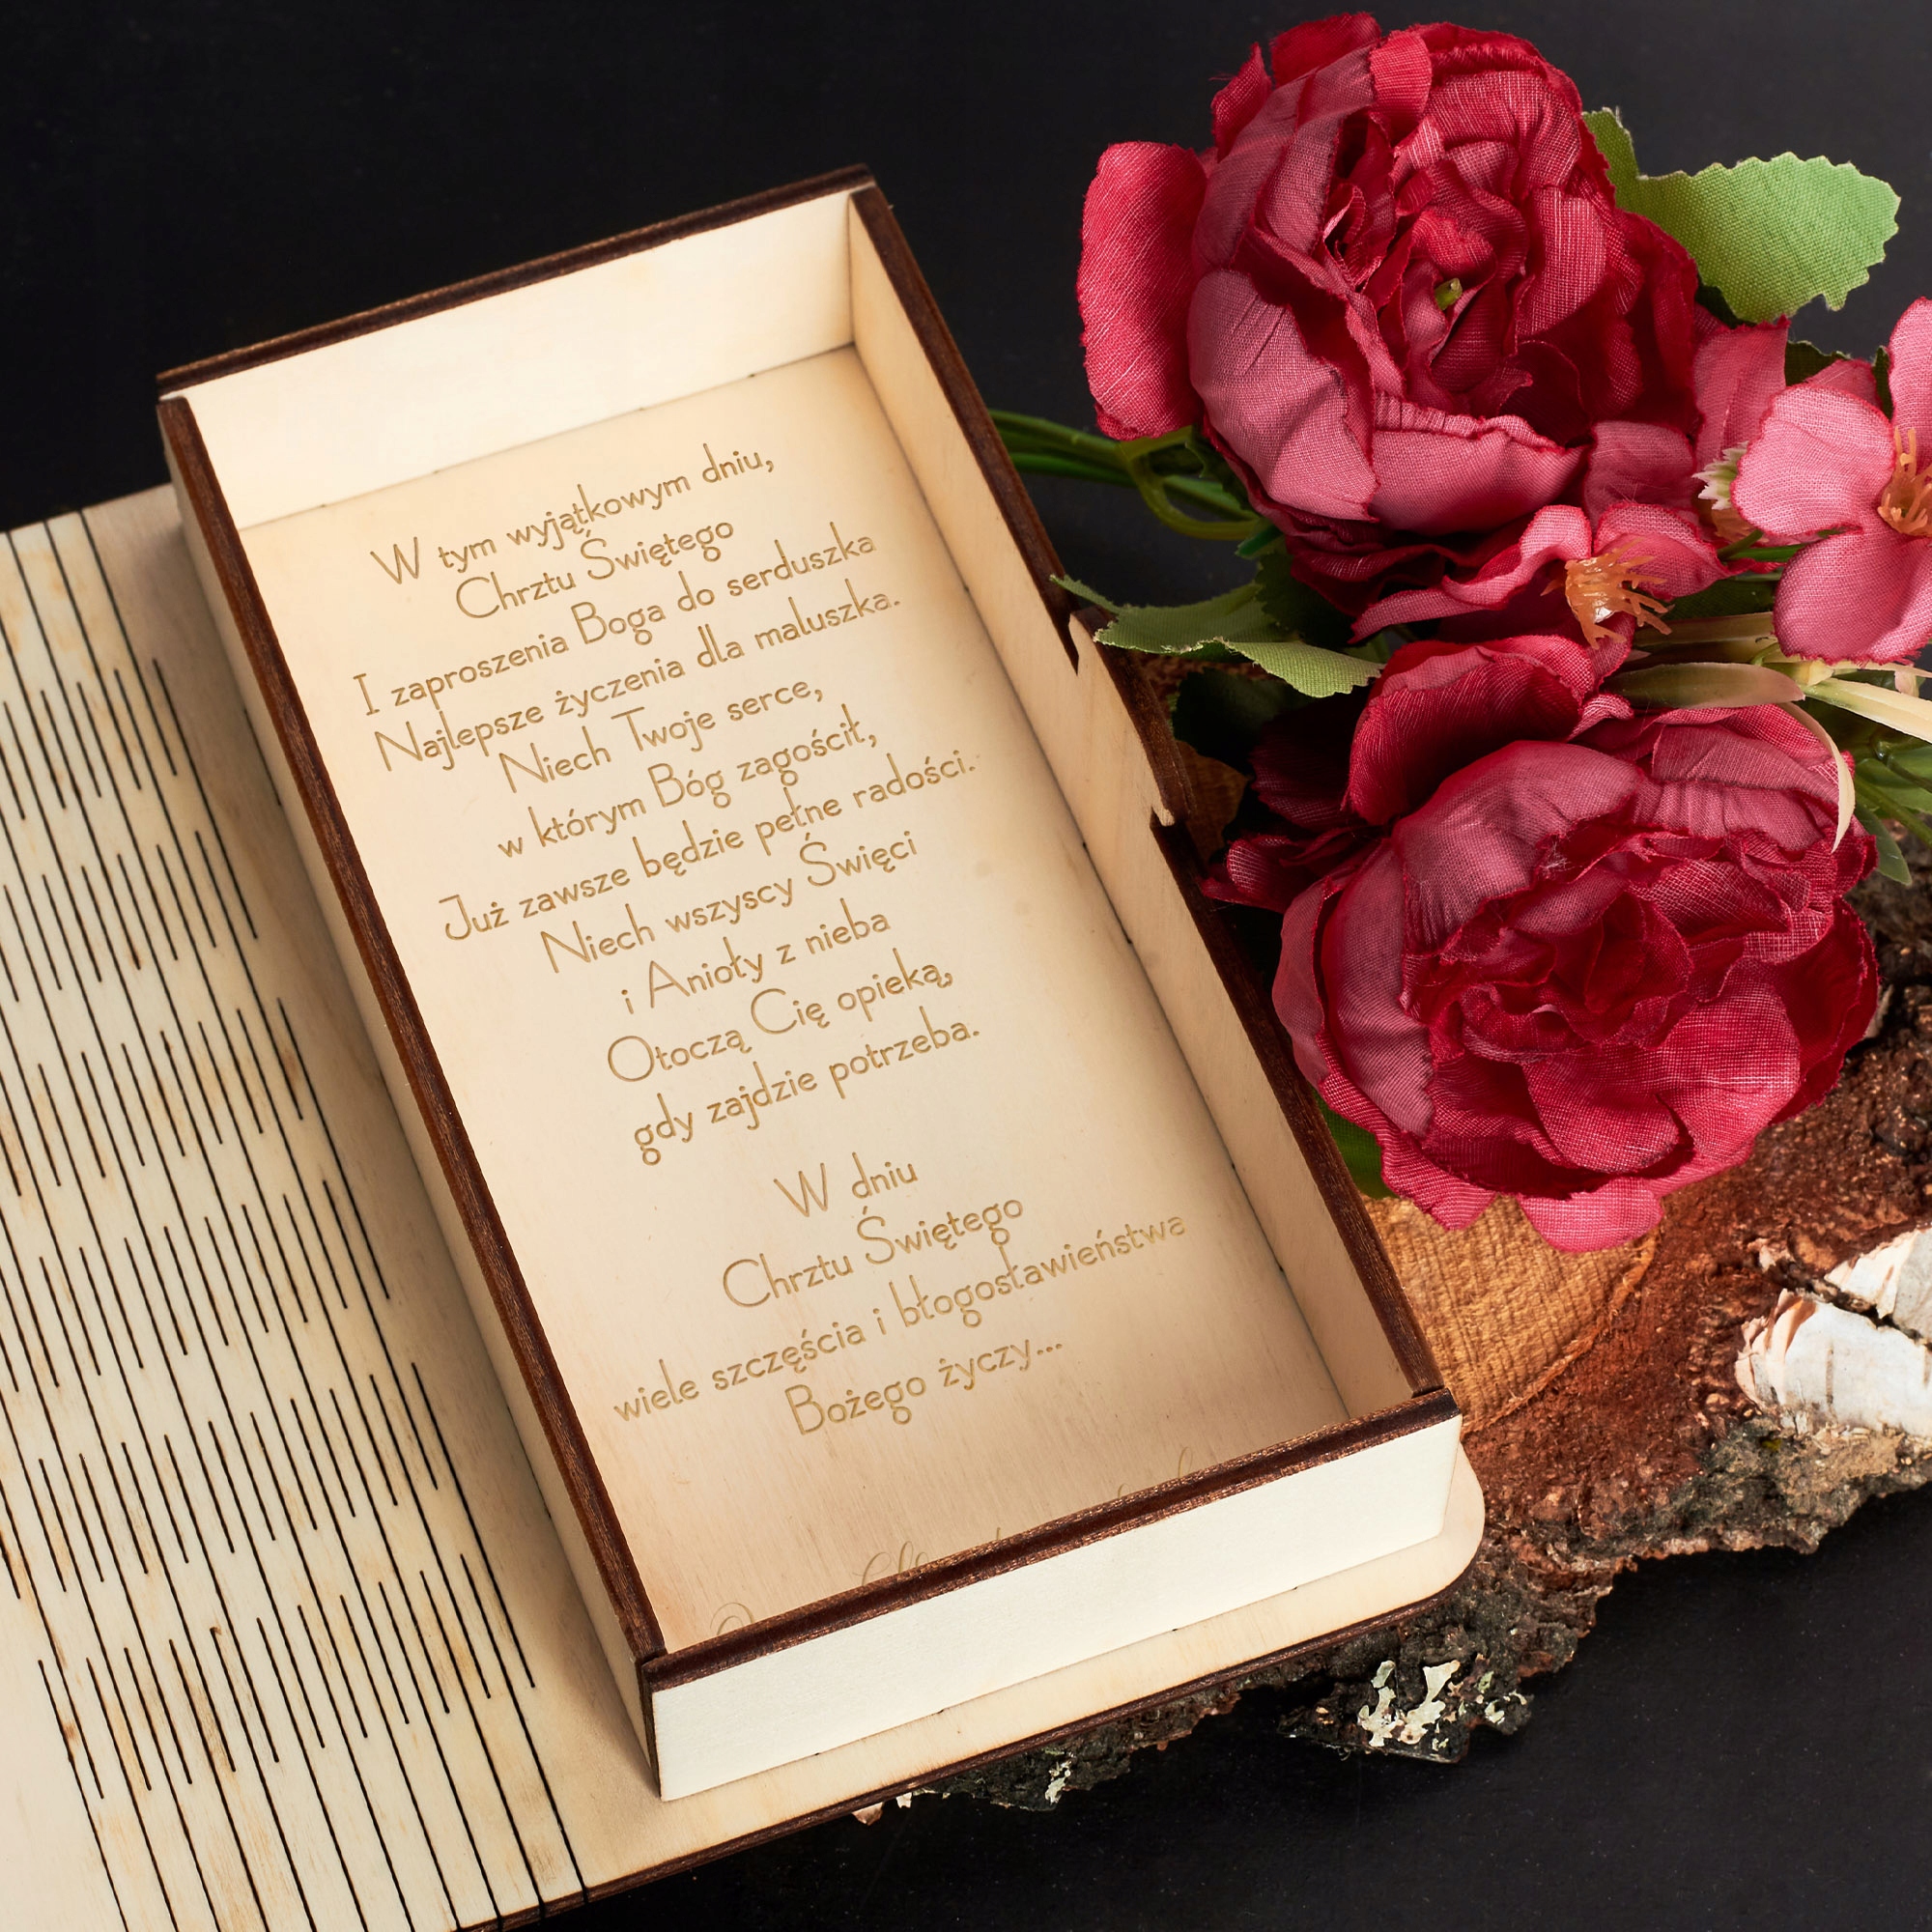 W tym wyjątkowym dniu,
Chrztu Świętego
I zaproszenia Boga do serduszka
Najlepsze życzenia dla maluszka.
Niech Twoje serce,
w którym Bóg zagościł,
Już zawsze będzie pełne radości.
Niech wszyscy Święci
i Anioły z nieba
Otoczą Cię opieką,
gdy zajdzie potrzeba.
W dniu
Chrztu Świętego
wiele szczęścia i błogosławieństwa
Bożego życzy...